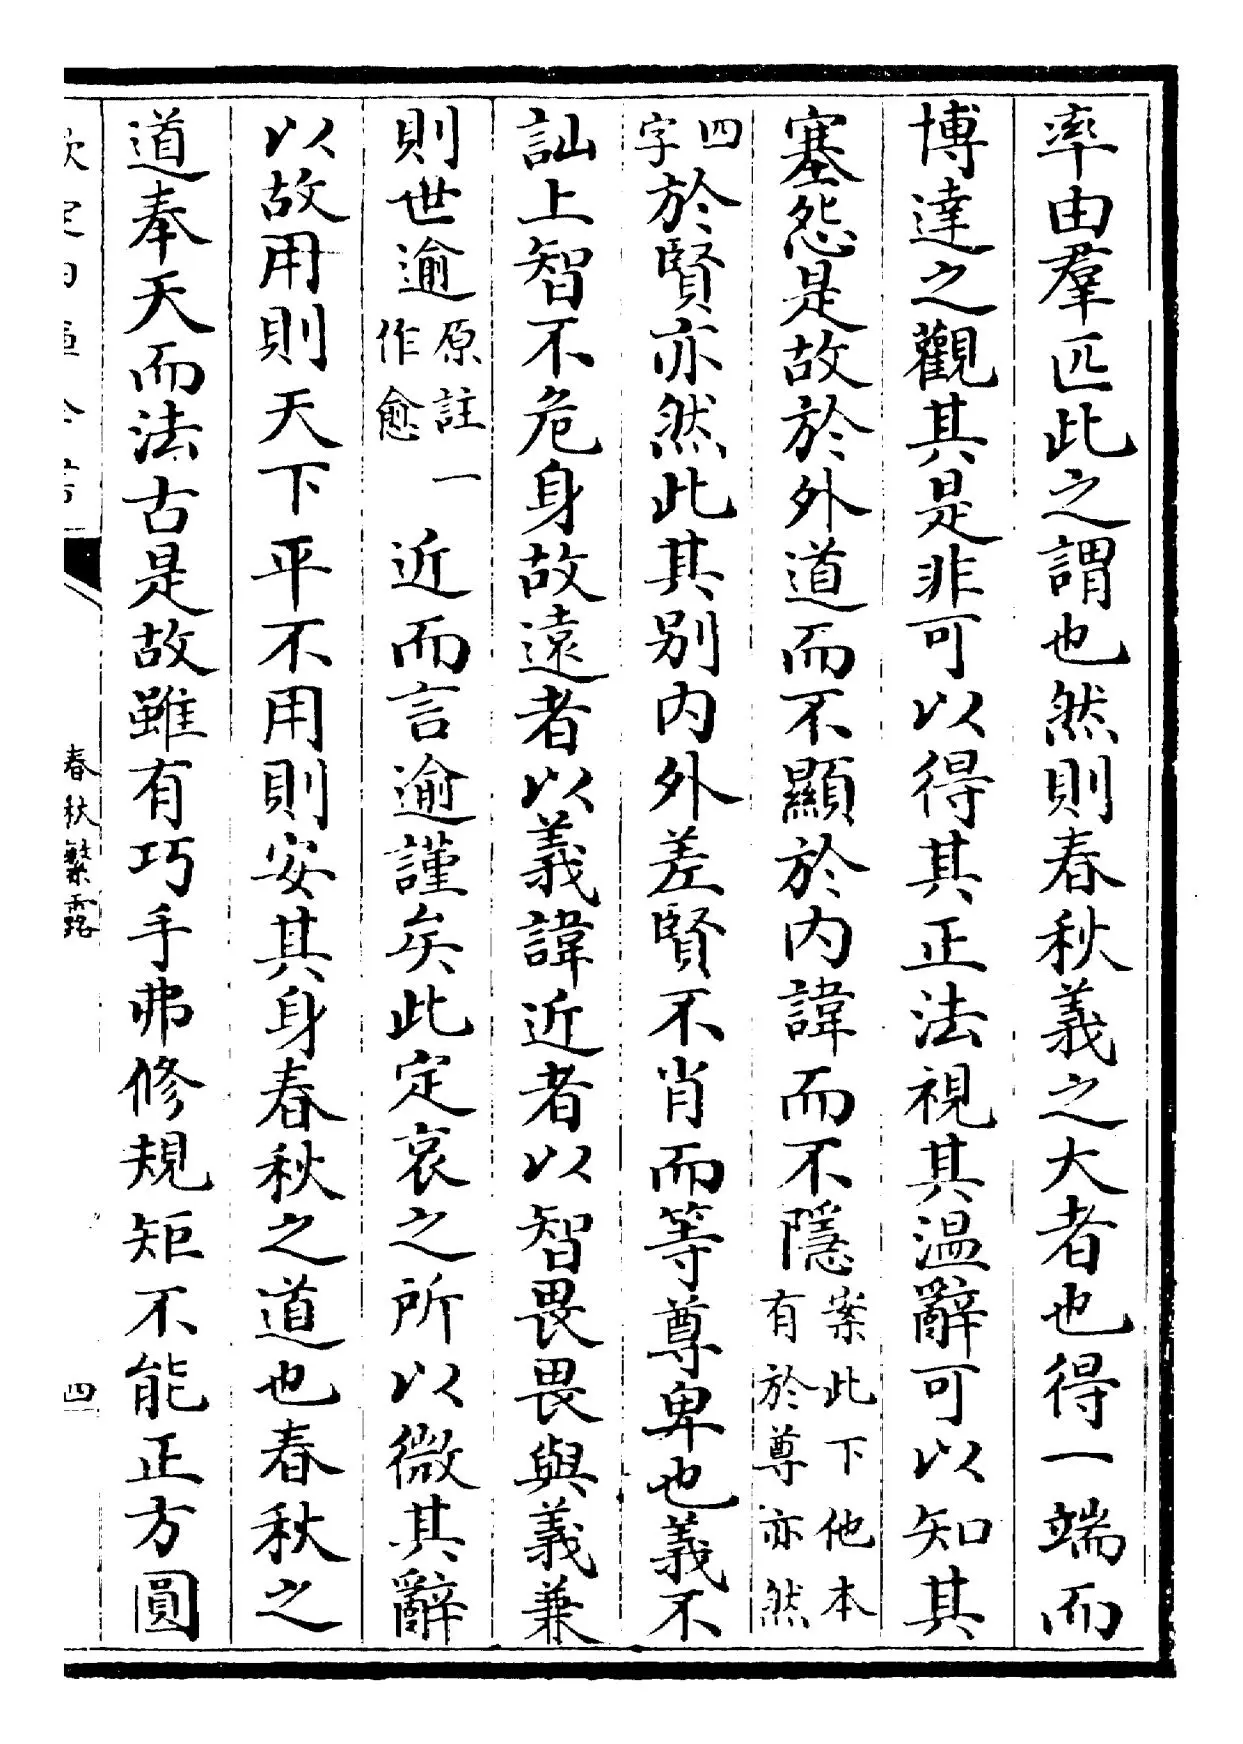 率由羣匹此之謂也然則春秋義之大者也得一端而
博達之觀其是非可以得其正法視其温辭可以知其
塞怨是故於外道而不顯於内諱而不隱案此下他本有於尊亦然
四字於賢亦然此其别内外差賢不肖而等尊卑也義不
訕上智不危身故遠者以義諱近者以智畏畏與義兼
則世逾原註一作愈近而言逾謹矣此定哀之所以微其辭
以故用則天下平不用則安其身春秋之道也春秋之
道奉天而法古是故雖有巧手弗修規矩不能正方圓
欽定四庫全書
春秋繁露
四